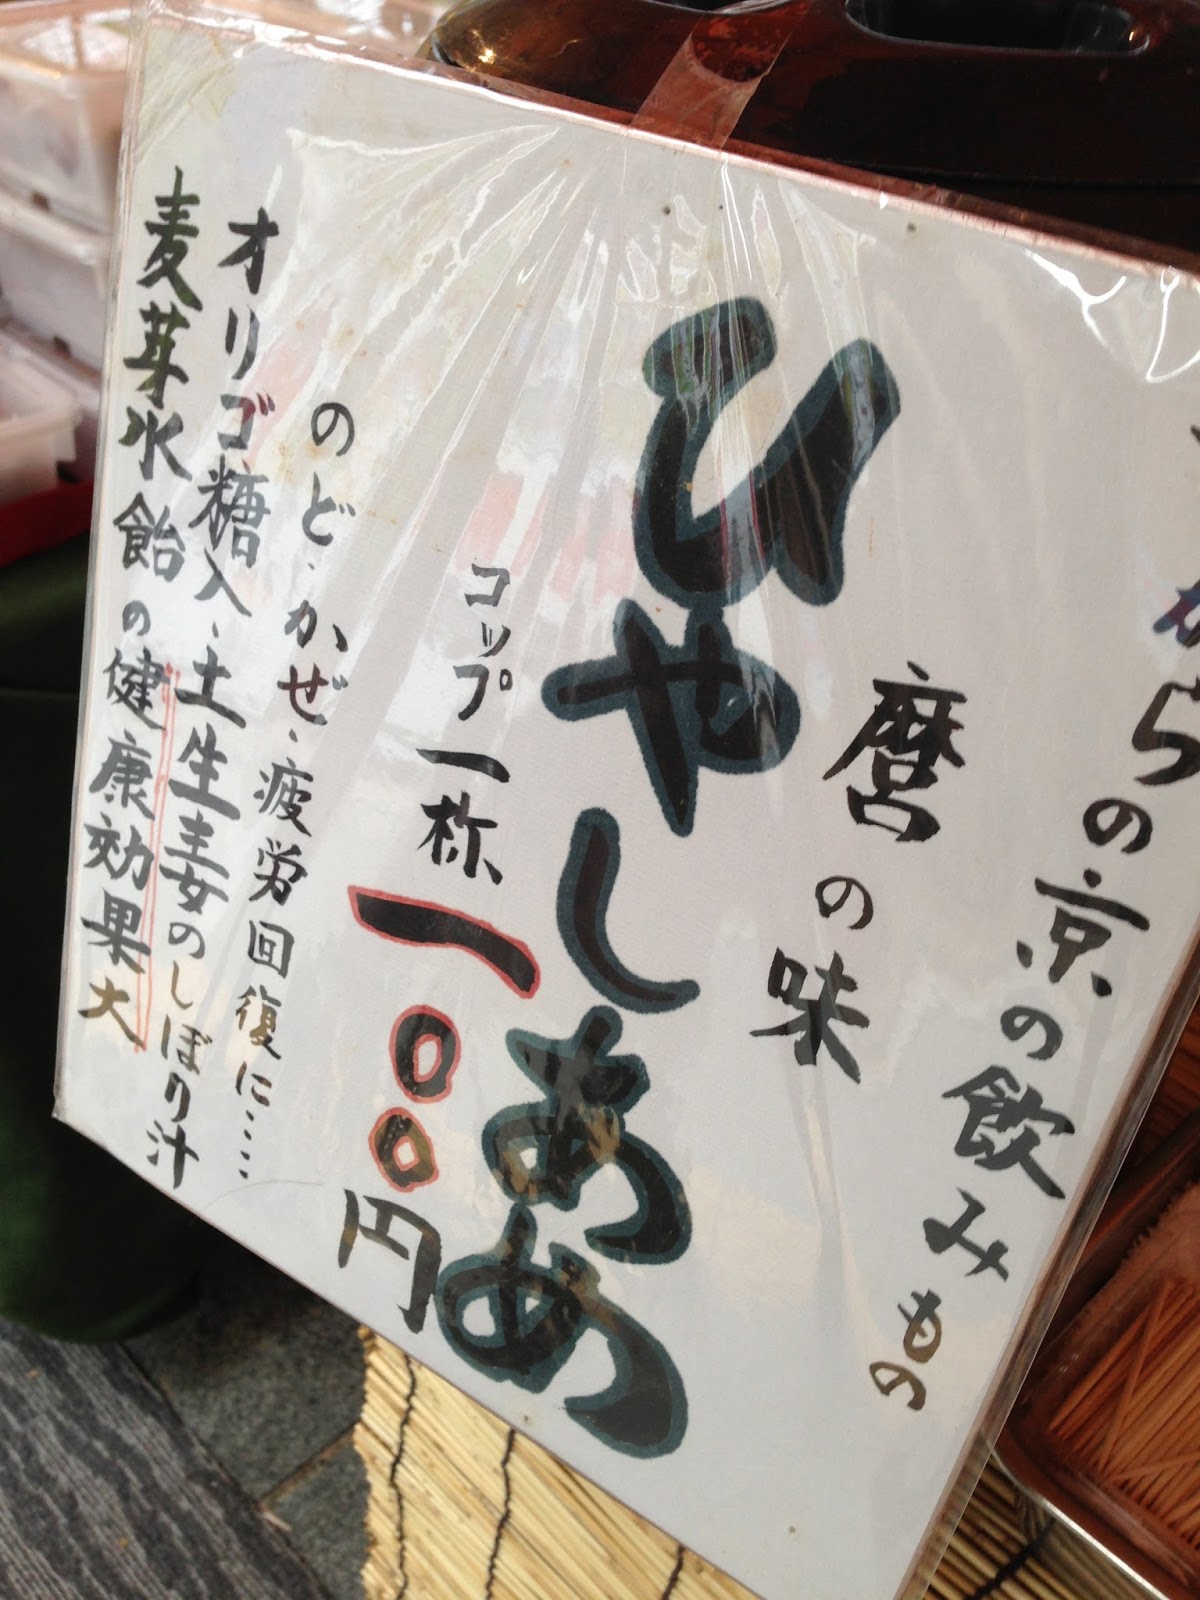 からの京の飲みもの
麿の味
ひやしあめ
コップ一杯
一〇〇円
のど・かぜ・疲労回復に……
オリゴ糖入・土生姜のしぼり汁
麦芽水飴の健康効果大